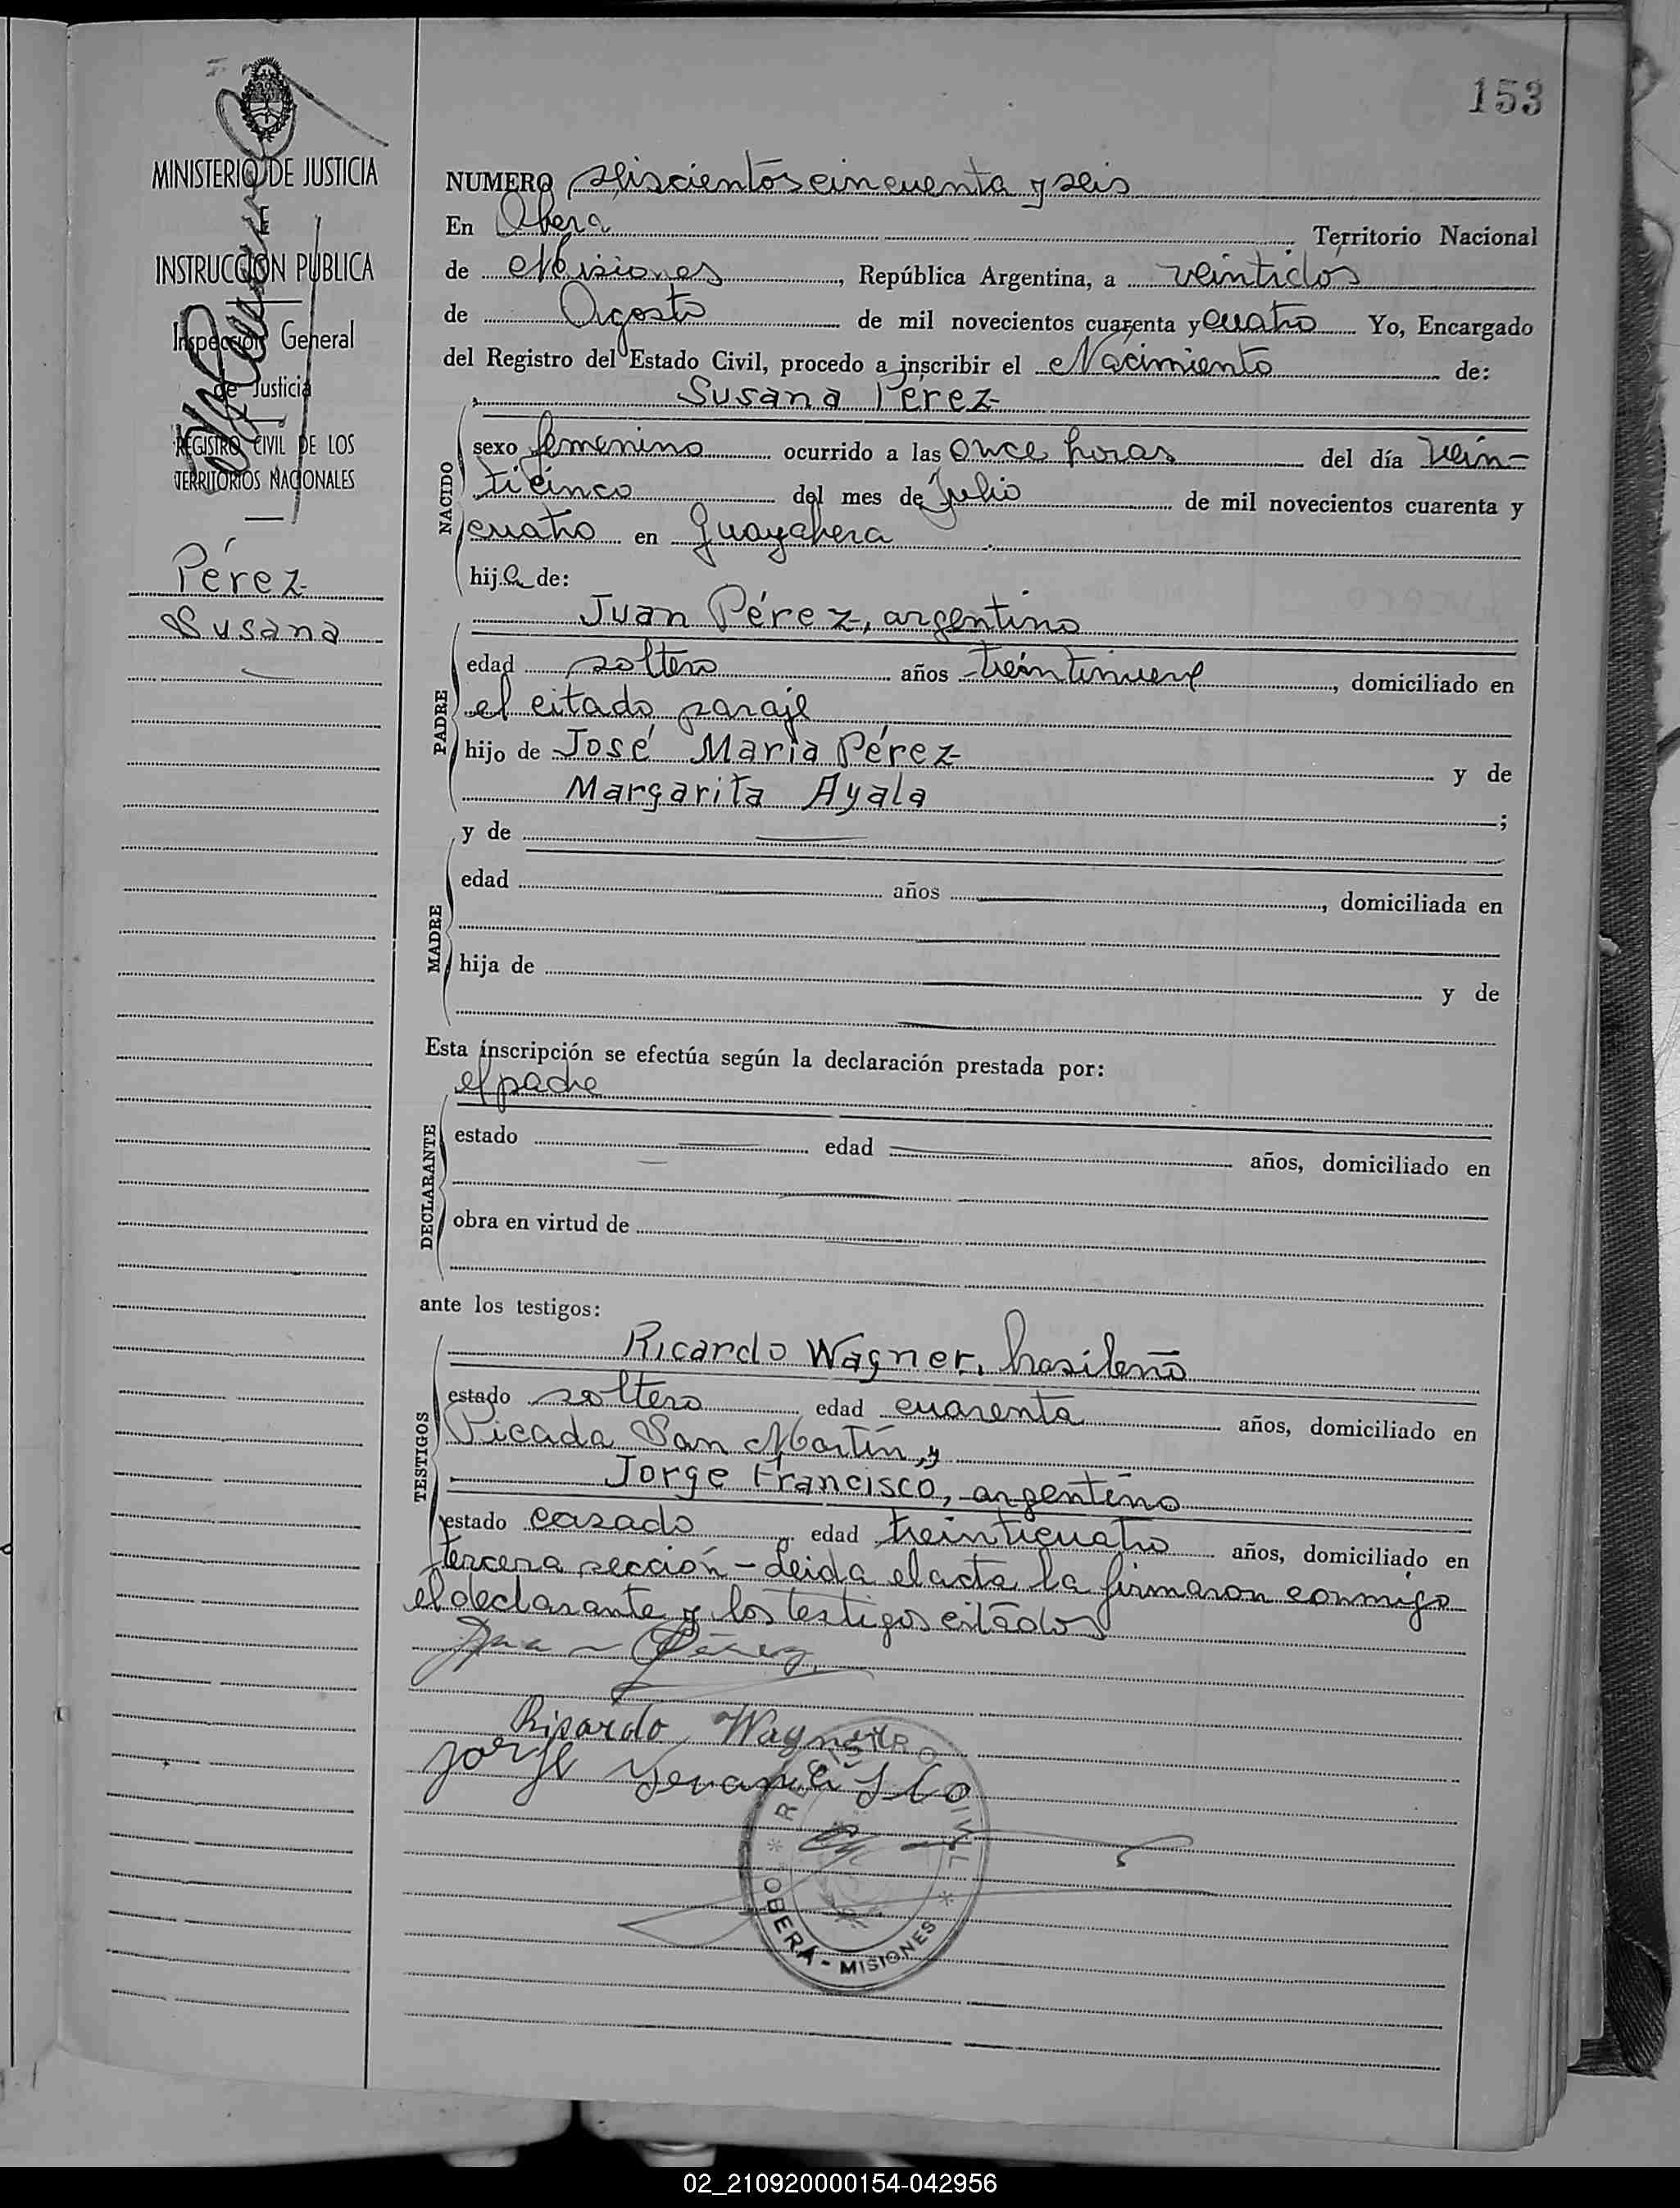 153
MINISTERIO DE JUSTICIA
E
INSTRUCCIÓN PUBLICA
Inspección General
de Justicia
REGISTRO CIVIL DE LOS
TERRITORIOS NACIONALES
Pérez
Susana
NUMERO seiscientos cincuenta y seis
En Obera Territorio Nacional
de Misiones, República Argentina, a veintidós
de Agosto de mil novecientos cuarenta y cuatro Yo, Encargado
del Registro del Estado Civil, procedo a inscribir el Nacimiento de:
Susana Pérez
NACIDO
sexo femenino ocurrido a las once horas del día vein-
ticinco del mes de Julio de mil novecientos cuarenta y
cuatro en Guayabera
hija de:
Juan Pérez, argentino
PADRE
edad soltero años treintinueve, domiciliado en
el citado paraje
hijo de José María Pérez y de
Margarita Ayala;
y de
MADRE
edad años, domiciliada en
hija de y de
Esta inscripción se efectúa según la declaración prestada por:
el padre
DECLARANTE
estado edad años, domiciliado en
obra en virtud de
ante los testigos:
Ricardo Wagner, brasileño
TESTIGOS
estado soltero edad cuarenta años, domiciliado en
Picada San Martín, y
Jorge Francisco, argentino
estado casado edad treinticuatro años, domiciliado en
tercera sección - Leida el acta la firmaron conmigo
el declarante y los testigos citados
Juan Pérez
Ricardo Wagner
Jorge Francisco
REGISTRO CIVIL
OBERÁ - MISIONES
02_210920000154-042956